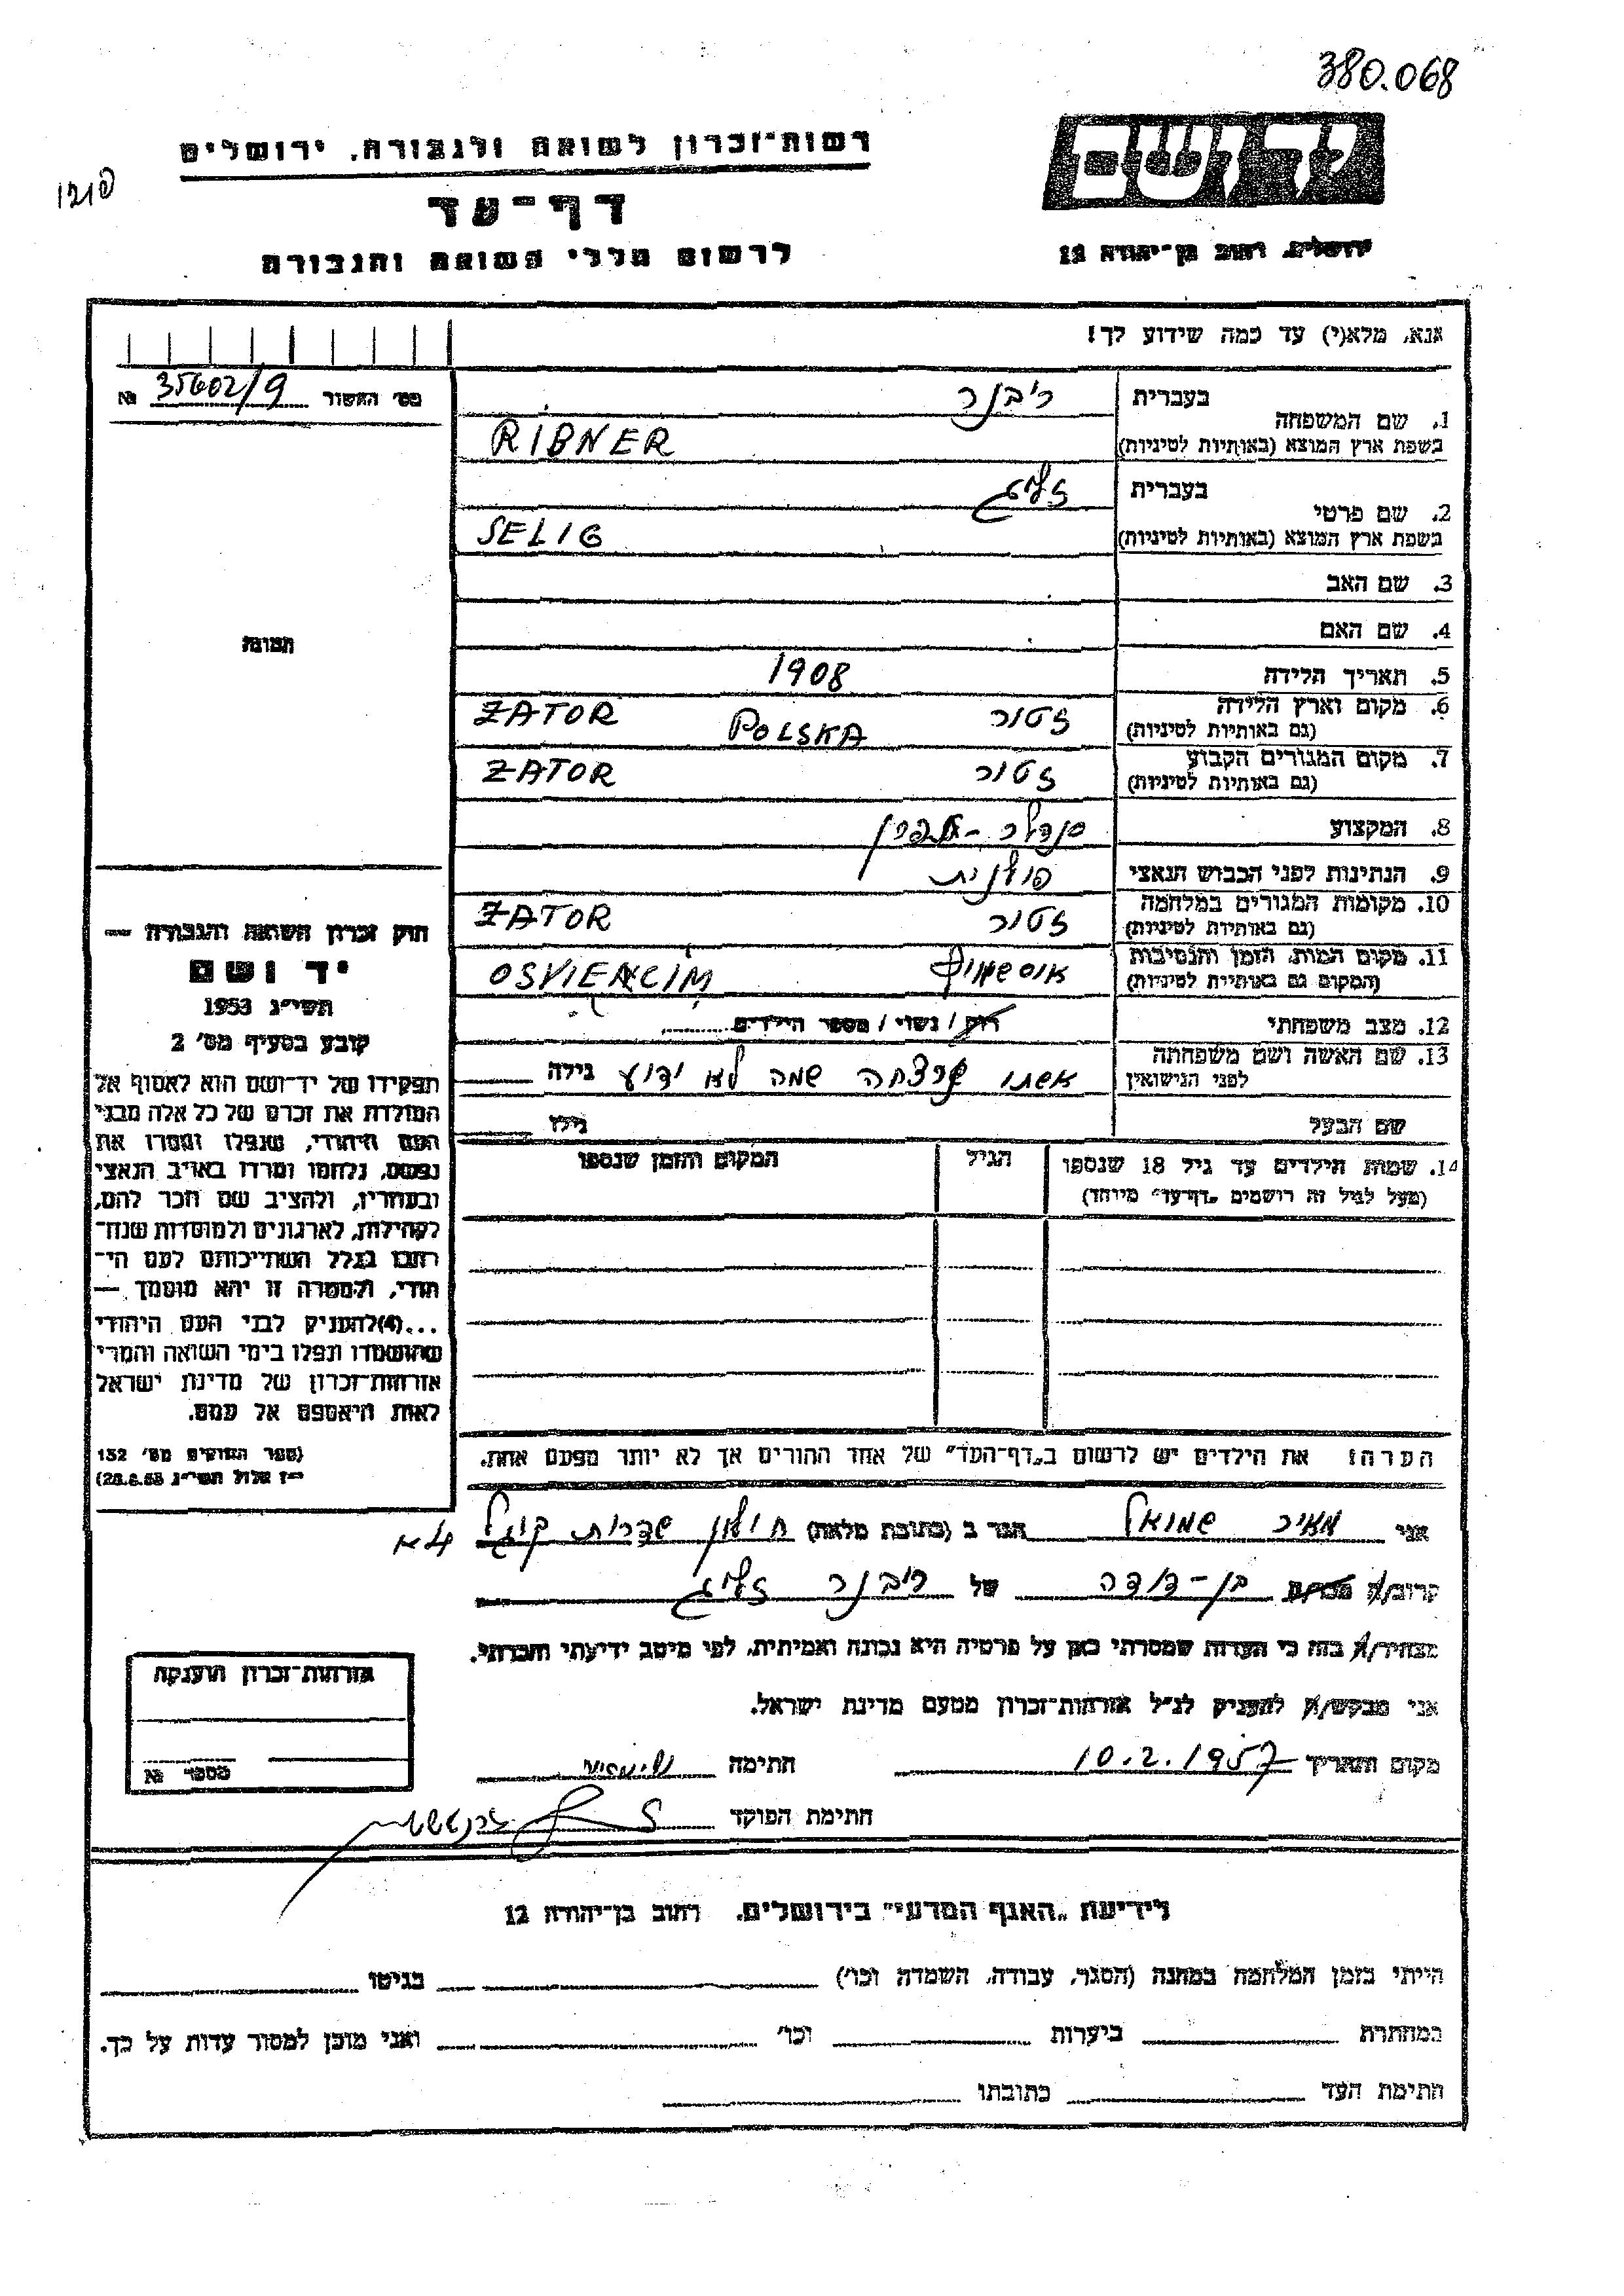 380.068
רשות־זכרון לשואה ולגבורה, ירושלים
דף־עד
לרשום חללי השואה והגבורה
יד ושם
ירושלים, רחוב בן־יהודה 12
אנא, מלא(י) עד כמה שידוע לך!
מס׳ האשור 35602/9 №
תמונה
1. שם המשפחה
בעברית ריבנר
בשפת ארץ המוצא (באותיות לטיניות) RIBNER
2. שם פרטי
בעברית זליג
בשפת ארץ המוצא (באותיות לטיניות) SELIG
3. שם האב
4. שם האם
5. תאריך הלידה 1908
6. מקום וארץ הלידה
(גם באותיות לטיניות) זטור POLSKA ZATOR
7. מקום המגורים הקבוע
(גם באותיות לטיניות) זטור ZATOR
8. המקצוע סנדלר -
9. הנתינות לפני הכבוש הנאצי פולנית
10. מקומות המגורים במלחמה
(גם באותיות לטיניות) זטור ZATOR
11. מקום המות, הזמן והנסיבות
(המקום גם באותיות לטיניות) OSVIENCIM
12. מצב משפחתי רווק / נשוי / מספר הילדים
13. שם האשה ושם משפחתה
לפני הנישואין אשתו שנרצחה שמה לא ידוע גילה
שם הבעל גילו
14. שמות הילדים עד גיל 18 שנספו הגיל המקום והזמן שנספו
(מעל לגיל זה רושמים „דף־עד״ מיוחד)
הערה: את הילדים יש לרשום ב„דף־העד״ של אחד ההורים אך לא יותר מפעם אחת.
חוק זכרון השואה והגבורה —
יד ושם
תשי״ג 1953
קובע בסעיף מס׳ 2
תפקידו של יד־ושם הוא לאסוף אל
המולדת את זכרם של כל אלה מבני
העם היהודי, שנפלו ומסרו את
נפשם, נלחמו ומרדו באויב הנאצי
ובעוזריו, ולהציב שם וזכר להם,
לקהילות, לארגונים ולמוסדות שנח־
רבו בגלל השתייכותם לעם הי־
הודי, ולמטרה זו יהא מוסמך —
...(4)להעניק לבני העם היהודי
שהושמדו ונפלו בימי השואה והמרי
אזרחות־זכרון של מדינת ישראל
לאות היאספם אל עמם.
(ספר החוקים מס׳ 132
י״ז אלול תשי״ג 28.8.53)
אני מאיר שמואל הגר ב (כתובת מלאה) חולון שדרות קוגל 4א
קרוב/ה מכיר/ה בן-דודה של ריבנר זליג
מצהיר/ה בזה כי העדות שמסרתי כאן על פרטיה היא נכונה ואמיתית, לפי מיטב ידיעתי והכרתי.
אני מבקש/ת להעניק לנ״ל אזרחות־זכרון מטעם מדינת ישראל.
מקום ותאריך 10.2.1957 חתימה
חתימת הפוקד
אזרחות־זכרון הוענקה
מספר №
לידיעת „האגף המדעי״ בירושלים, רחוב בן־יהודה 12
הייתי בזמן המלחמה במחנה (הסגר, עבודה, השמדה וכו׳) בגיטו
במחתרת ביערות וכו׳ ואני מוכן למסור עדות על כך.
חתימת העד כתובתו